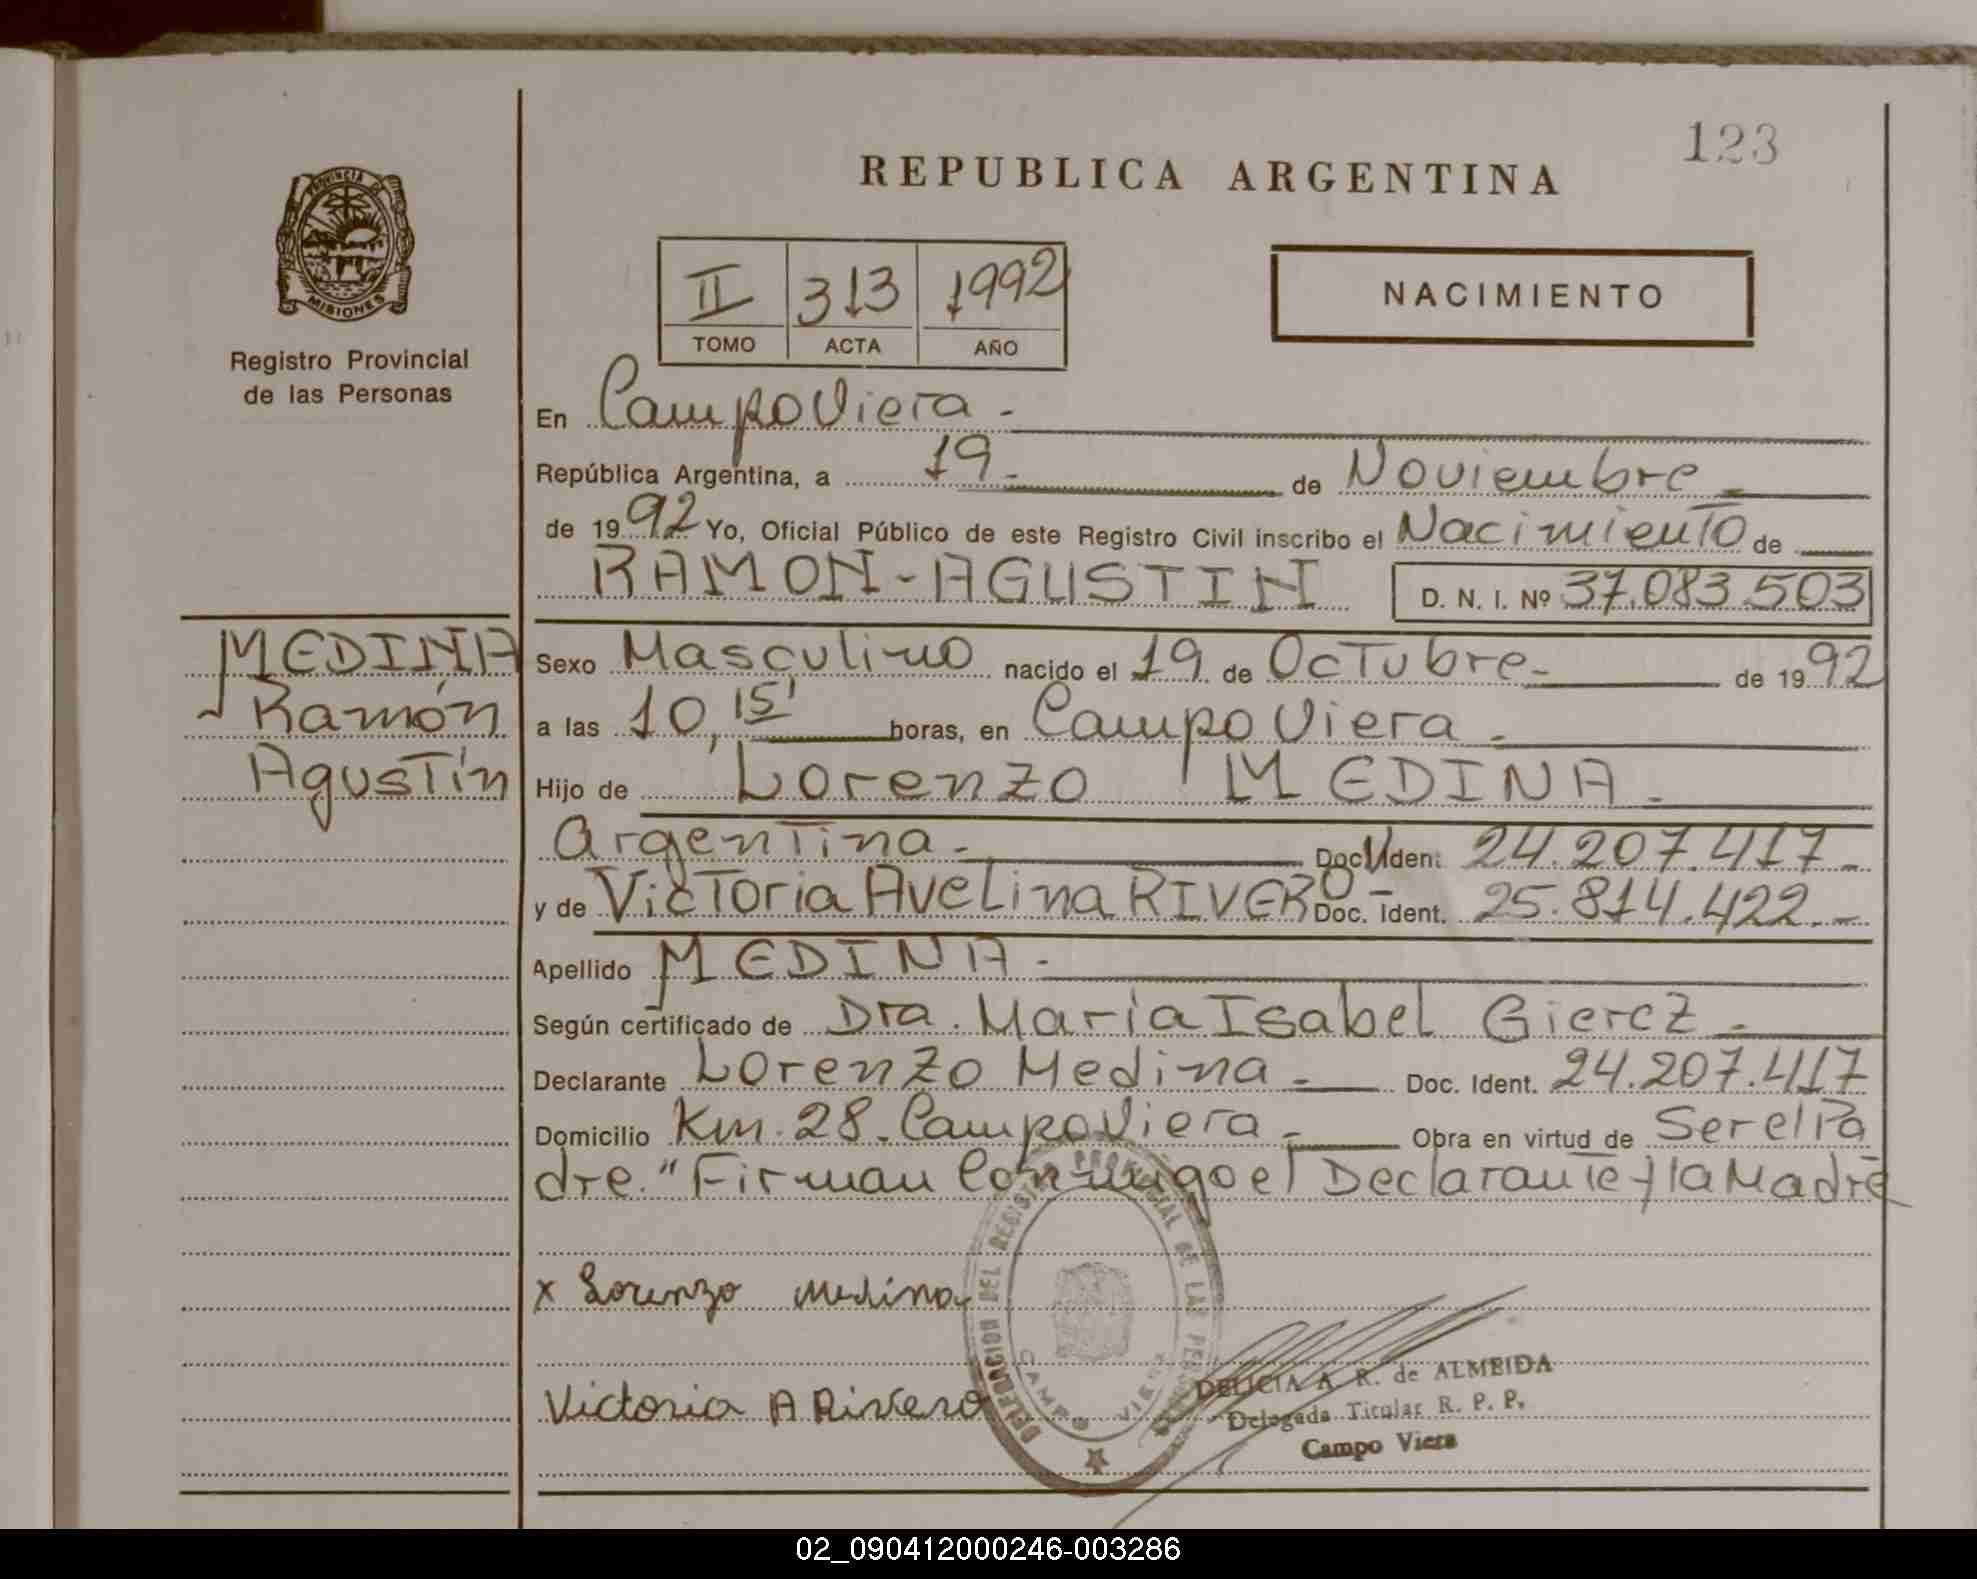 123
REPUBLICA ARGENTINA
PROVINCIA DE
MISIONES
Registro Provincial
de las Personas
II 313 1992
TOMO ACTA AÑO
NACIMIENTO
En Campo Viera -
República Argentina, a 19 - de Noviembre
de 1992 Yo, Oficial Público de este Registro Civil inscribo el Nacimiento de
RAMON - AGUSTIN D. N. I. Nº 37.083.503
MEDINA
Ramón
Agustín
Sexo Masculino nacido el 19 de Octubre - de 1992
a las 10, 15' horas, en Campo Viera -
Hijo de Lorenzo MEDINA -
Argentina - Doc. Ident. 24.207.417 -
y de Victoria Avelina RIVERO - Doc. Ident. 25.814.422 -
Apellido MEDINA -
Según certificado de Dra. María Isabel Giercz -
Declarante Lorenzo Medina - Doc. Ident. 24.207.417
Domicilio Km. 28. Campo Viera - Obra en virtud de Ser el Pa
dre." Firman Conmigo el Declarante y la Madre
x Lorenzo Medina
Victoria A Rivero
DELEGACION DEL REGISTRO PROVINCIAL DE LAS PERSONAS
CAMPO VIERA
DELICIA A. R. de ALMEIDA
Delegada Titular R. P. P.
Campo Viera
02_090412000246-003286